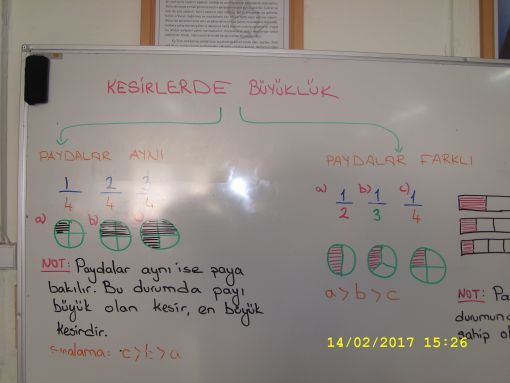 KESİRLERDE BÜYÜKLÜK
PAYDALAR AYNI
1/4 2/4 3/4
a) b) c)
NOT: Paydalar aynı ise paya
bakılır. Bu durumda payı
büyük olan kesir, en büyük
kesirdir.
Sıralama: c > b > a
PAYDALAR FARKLI
a) 1/2 b) 1/3 c) 1/4
a > b > c
NOT: Pa
durumun
sahip ol
14/02/2017 15:26